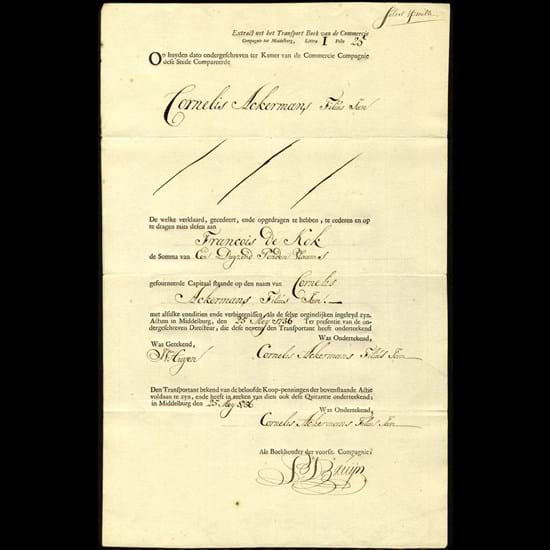 Extract uyt het Transport Boek van de Commercie
Compagnie tot Middelburg, Littra I Folio 25
Op huyden dato ondergeschreven ter Kamer van de Commercie Compagnie
dese Stede Compareerde
Cornelis Ackermans Filius Jan
De welke verklaard, gecedeert, ende opgedragen te hebben, te cederen en op
te dragen mits desen aan
Francois de Kok
de Somma van Een Duyzend Ponden Vlaams
gefourneerde Capitaal staande op den naam van Cornelis
Ackermans Filius Jan
met alsulke conditien ende verbintenissen, als de selve originelijken ingeleyd zyn.
Actum in Middelburg, den 25 Mey 1756 Ter presentie van de on-
dergeschreven Directeur, die dese nevens den Transportant heeft onderteekend
Was Getekend, Was Onderteekend,
Cornelis Ackermans Filius Jan
Den Transportant bekend van de beloofde Koop-penningen der bovenstaande Actie
voldaan te zyn, ende heeft in teeken van dien ook dese Quitantie onderteekend,
in Middelburg den 25 Mey 1756
Was Ondertekend,
Cornelis Ackermans Filius Jan
Als Boekhouder der voorsz. Compagnie;